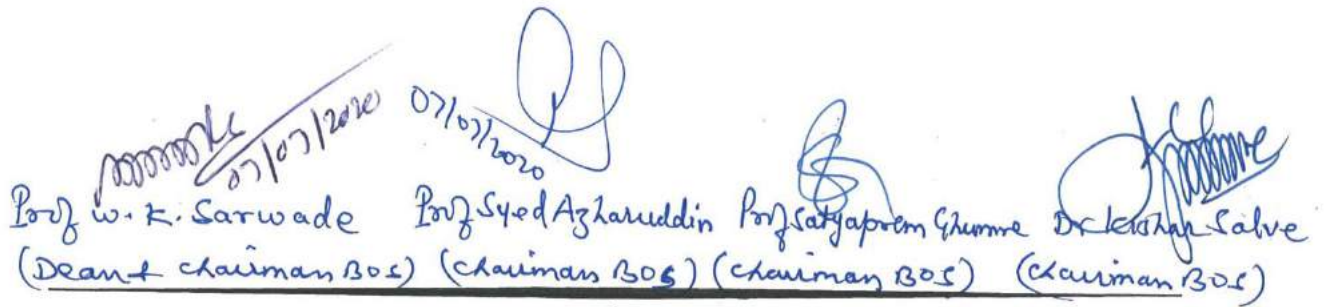 07/07/2020 07/07/2020
Prof W. K. Sarwade Prof Syed Azharuddin Prof Satyaprem Ghumre Dr Kishor Salve
(Dean & Chairman BOS) (Chairman BOS) (Chairman BOS) (Chairman BOS)